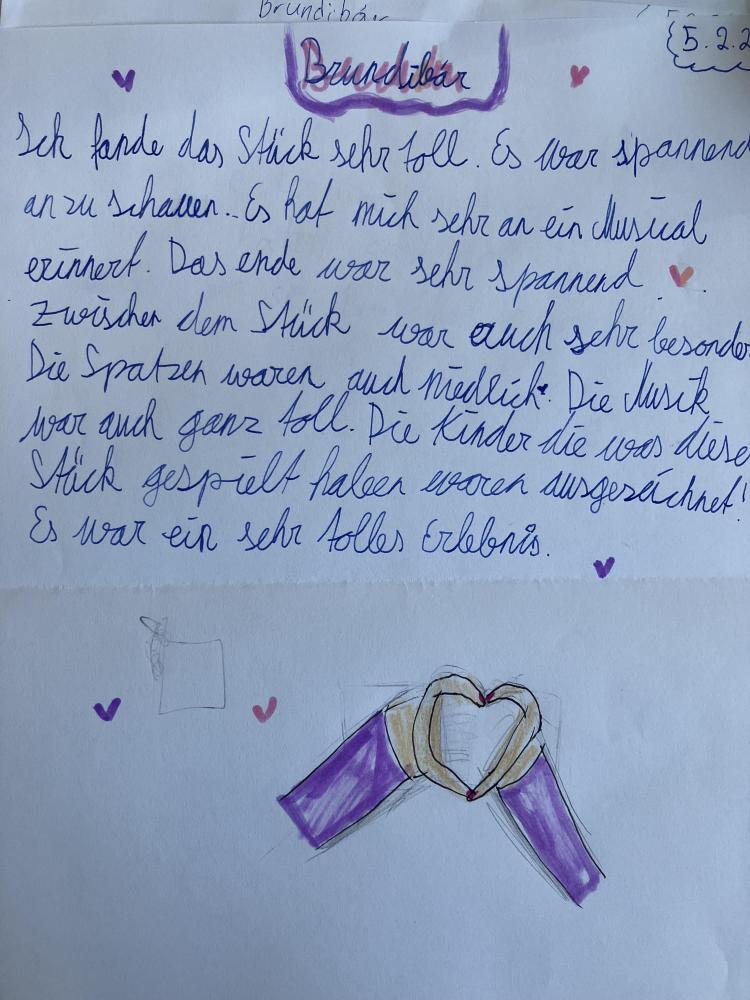 Brundibár
5.2.2
Brundibár
Ich fande das Stück sehr toll. Es war spannend
anzuschauen.. Es hat mich sehr an ein Musical
erinnert. Das ende war sehr spannend.
Zwischen dem Stück war auch sehr besonder
Die Spatzen waren auch niedlich. Die Musik
war auch ganz toll. Die Kinder die was diese
Stück gespielt haben waren ausgezeichnet!
Es war ein sehr tolles Erlebnis.